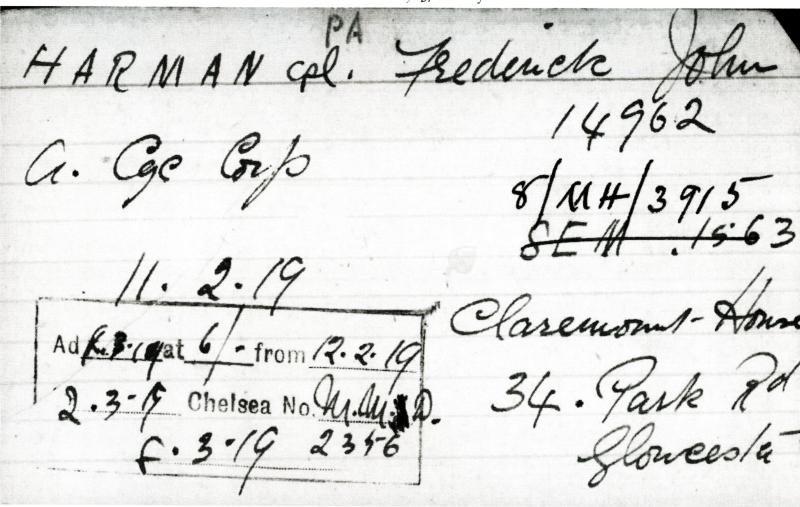 PA
HARMAN Cpl. Frederick John
14962
A. Cyc Corps
8/MH/3915
SEM .1563
11. 2. 19
Claremount House
Ad at 6/- from 12.2.19
2.3.19 Chelsea No. M.M.S.D.
34. Park Rd
.3.19 2356
Gloucester